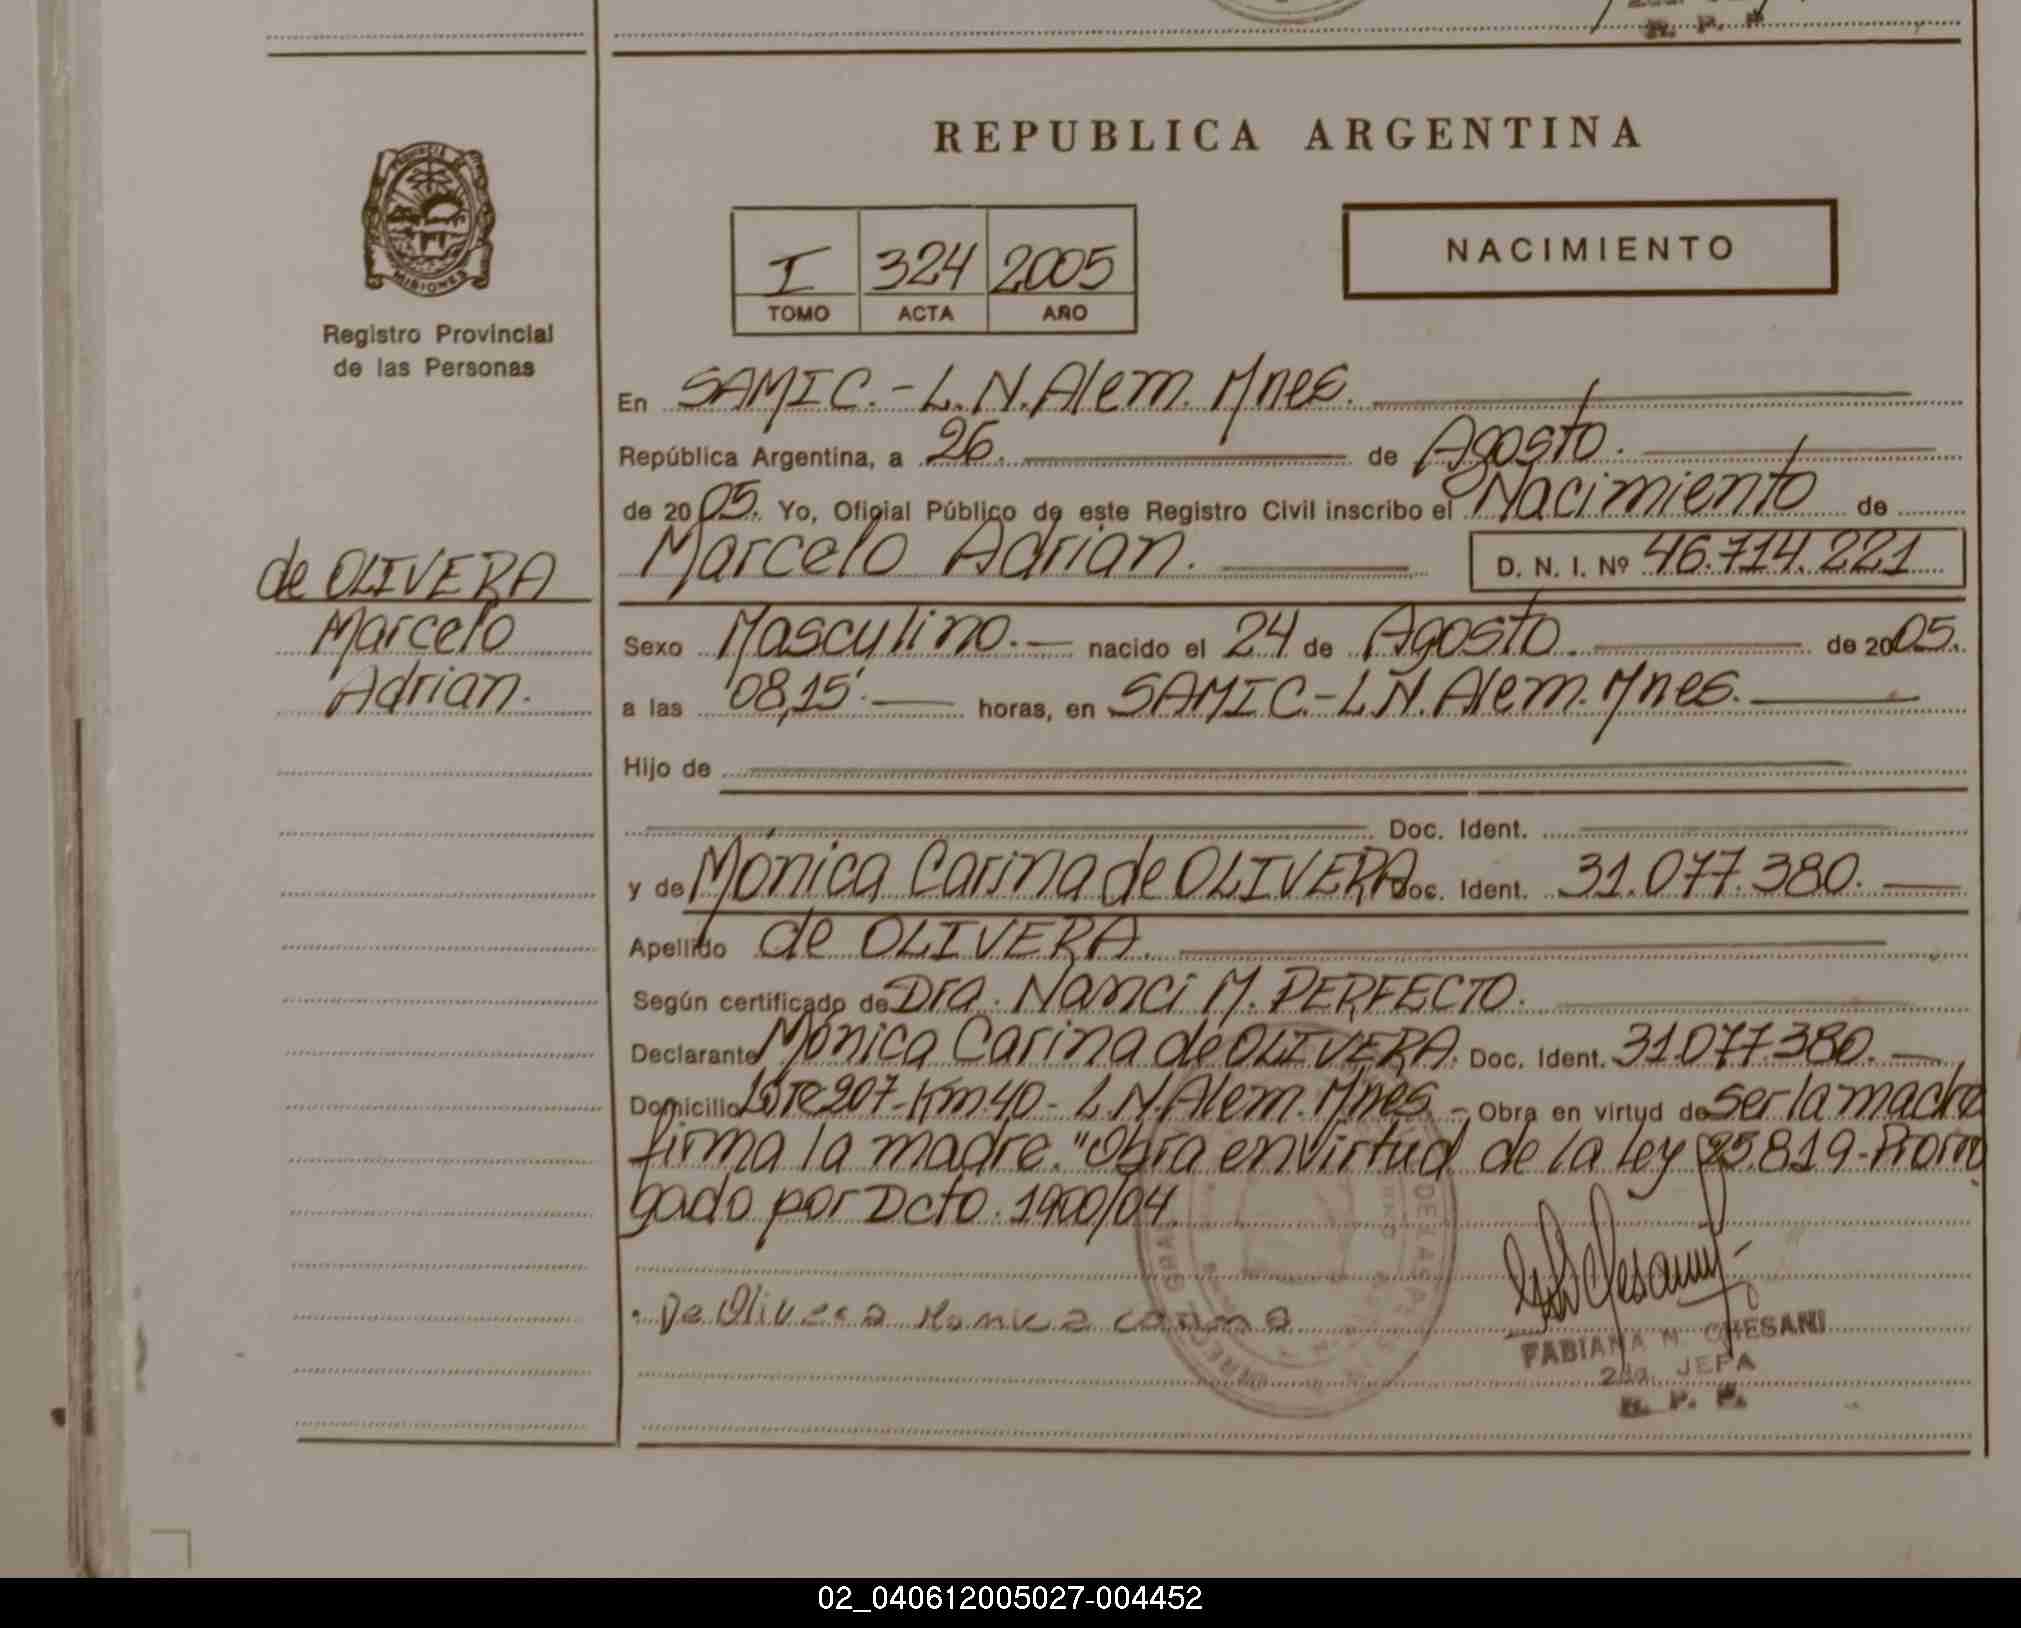 R. P. P.
REPUBLICA ARGENTINA
PROVINCIA DE
MISIONES
Registro Provincial
de las Personas
I 324 2005
TOMO ACTA AÑO
NACIMIENTO
En SAMIC.-L.N.Alem. Mnes.
República Argentina, a 26. de Agosto.
de 2005. Yo, Oficial Público de este Registro Civil inscribo el Nacimiento de
Marcelo Adrian. D. N. I. Nº 46.714.221
de OLIVERA
Marcelo
Adrian.
Sexo Masculino.- nacido el 24 de Agosto. de 2005.
a las 08,15'. horas, en SAMIC.-L.N.Alem. Mnes.
Hijo de
Doc. Ident.
y de Mónica Carina de OLIVERA Doc. Ident. 31.077.380.
Apellido de OLIVERA.
Según certificado de Dra. Nanci M. PERFECTO.
Declarante Mónica Carina de OLIVERA. Doc. Ident. 31.077.380.
Domicilio Lote 207-Km.40- L.N.Alem. Mnes.- Obra en virtud de ser la madre
firma la madre. "Obra en virtud de la Ley 25.819-Prom
gado por Dcto. 1900/04.
De Olivera Monica Carina
FABIANA N. CHESANI
2da. JEFA
R. P. P.
02_040612005027-004452